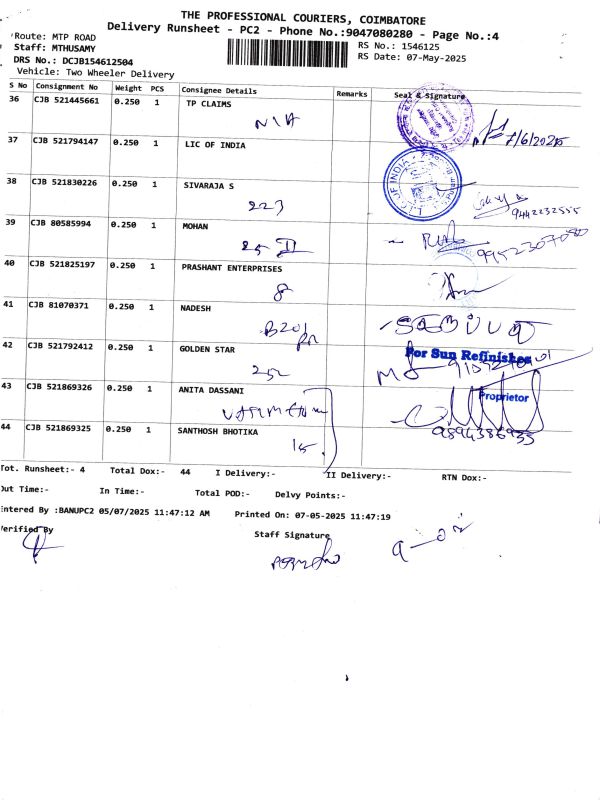 THE PROFESSIONAL COURIERS, COIMBATORE
Delivery Runsheet - PC2 - Phone No.:9047080280 - Page No.:4
Route: MTP ROAD
Staff: MTHUSAMY
RS No.: 1546125
DRS No.: DCJB154612504
RS Date: 07-May-2025
Vehicle: Two Wheeler Delivery
S No Consignment No Weight PCS Consignee Details Remarks Seal & Signature
36 CJB 521445661 0.250 1 TP CLAIMS
NIA
37 CJB 521794147 0.250 1 LIC OF INDIA
LIC OF INDIA
38 CJB 521830226 0.250 1 SIVARAJA S
223
9442232555
39 CJB 80585994 0.250 1 MOHAN
25 II
9952307080
40 CJB 521825197 0.250 1 PRASHANT ENTERPRISES
8
41 CJB 81070371 0.250 1 NADESH
B20/
42 CJB 521792412 0.250 1 GOLDEN STAR
252
For Sun Refinishes
43 CJB 521869326 0.250 1 ANITA DASSANI
Proprietor
44 CJB 521869325 0.250 1 SANTHOSH BHOTIKA
15
9894386933
Tot. Runsheet:- 4 Total Dox:- 44 I Delivery:- II Delivery:- RTN Dox:-
Out Time:- In Time:- Total POD:- Delvy Points:-
Entered By :BANUPC2 05/07/2025 11:47:12 AM Printed On: 07-05-2025 11:47:19
Verified By Staff Signature